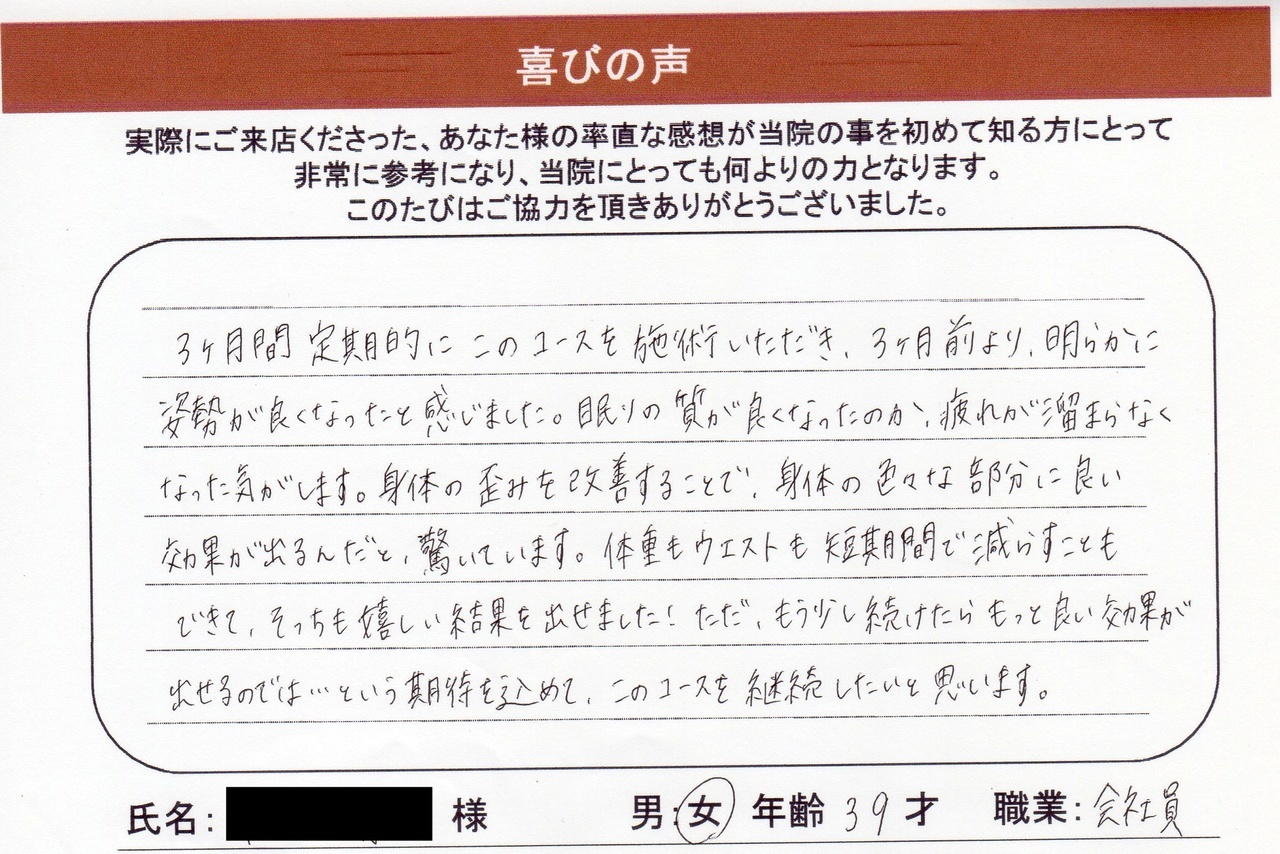 喜びの声
実際にご来店くださった、あなた様の率直な感想が当院の事を初めて知る方にとって
非常に参考になり、当院にとっても何よりの力となります。
このたびはご協力を頂きありがとうございました。
3ヶ月間 定期的に このコースを 施術いただき、3ヶ月前より、明らかに
姿勢が良くなったと感じました。眠りの質が良くなったのか、疲れが溜まらなく
なった気がします。身体の歪みを改善することで、身体の色々な部分に良い
効果が出るんだと、驚いています。体重もウエストも短期間で減らすことも
できて、そっちも嬉しい結果を出せました！ただ、もう少し続けたらもっと良い効果が
出せるのでは…という期待を込めて、このコースを継続したいと思います。
氏名： 様 男：女 年齢 39 才 職業：会社員